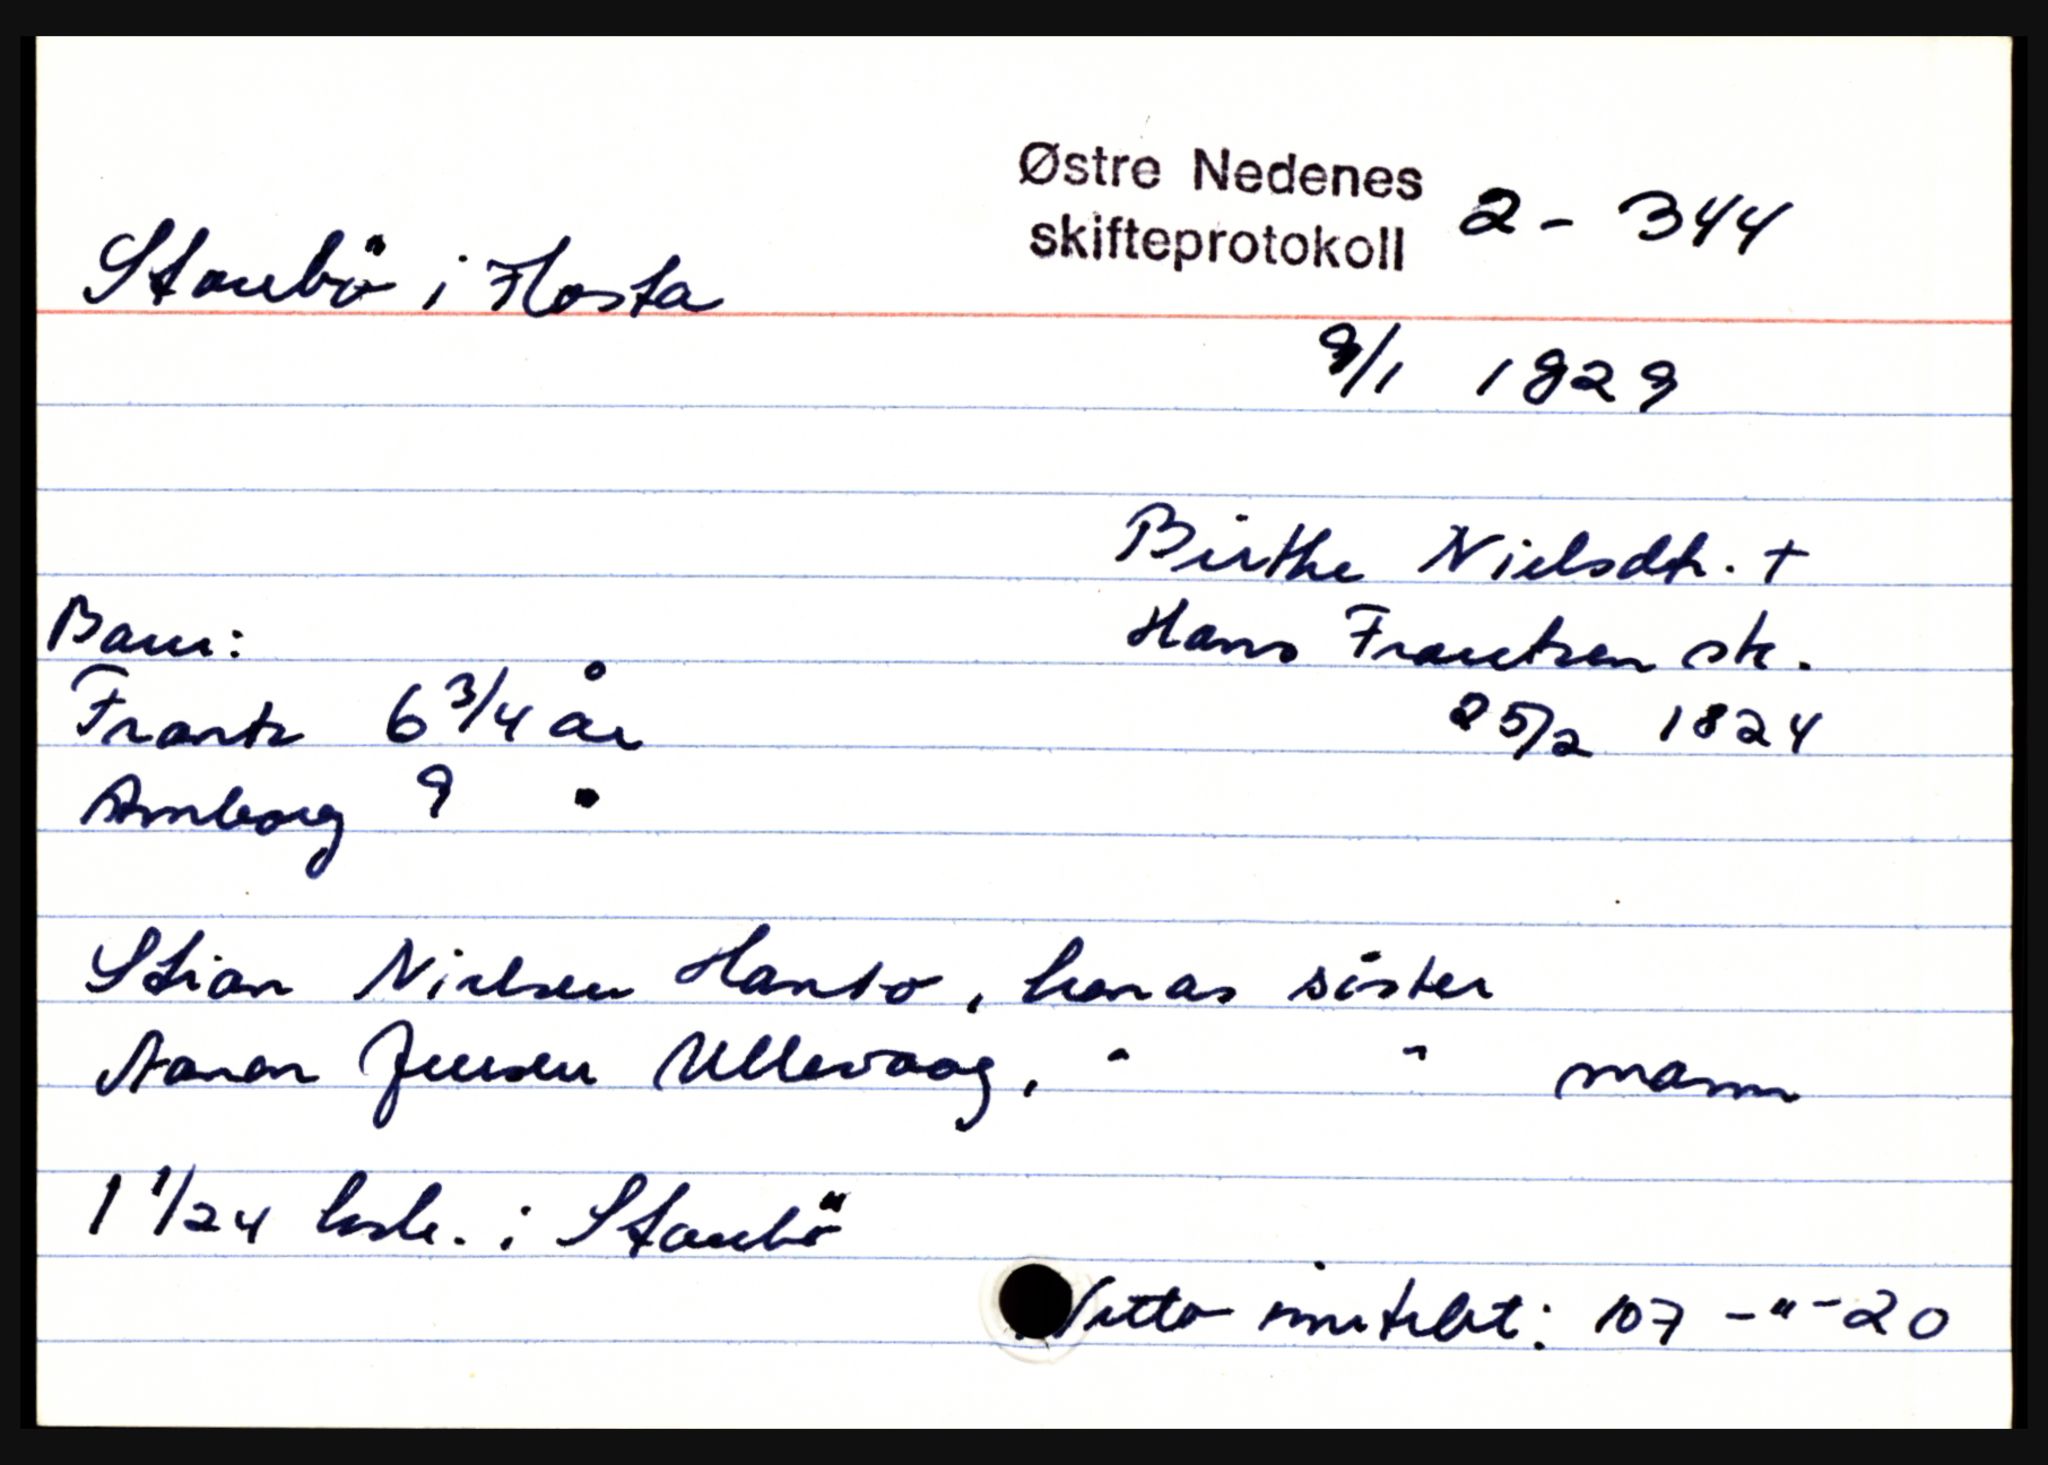 Østre Nedenes
skifteprotokoll 2 - 344
Staubö i Flosta
9/1 1829
Birthe Nielsdtr. +
Hans Frantzen sk.
25/2 1824
Barn:
Frantz 6 3/4 år
Amborg 9 "
Stian Nielsen Hantö, hennes söster
Aanon Jensen Ullevaag, " " mann
1 1/24 hud. i Staubö
Netto inntekt: 107 - " - 20